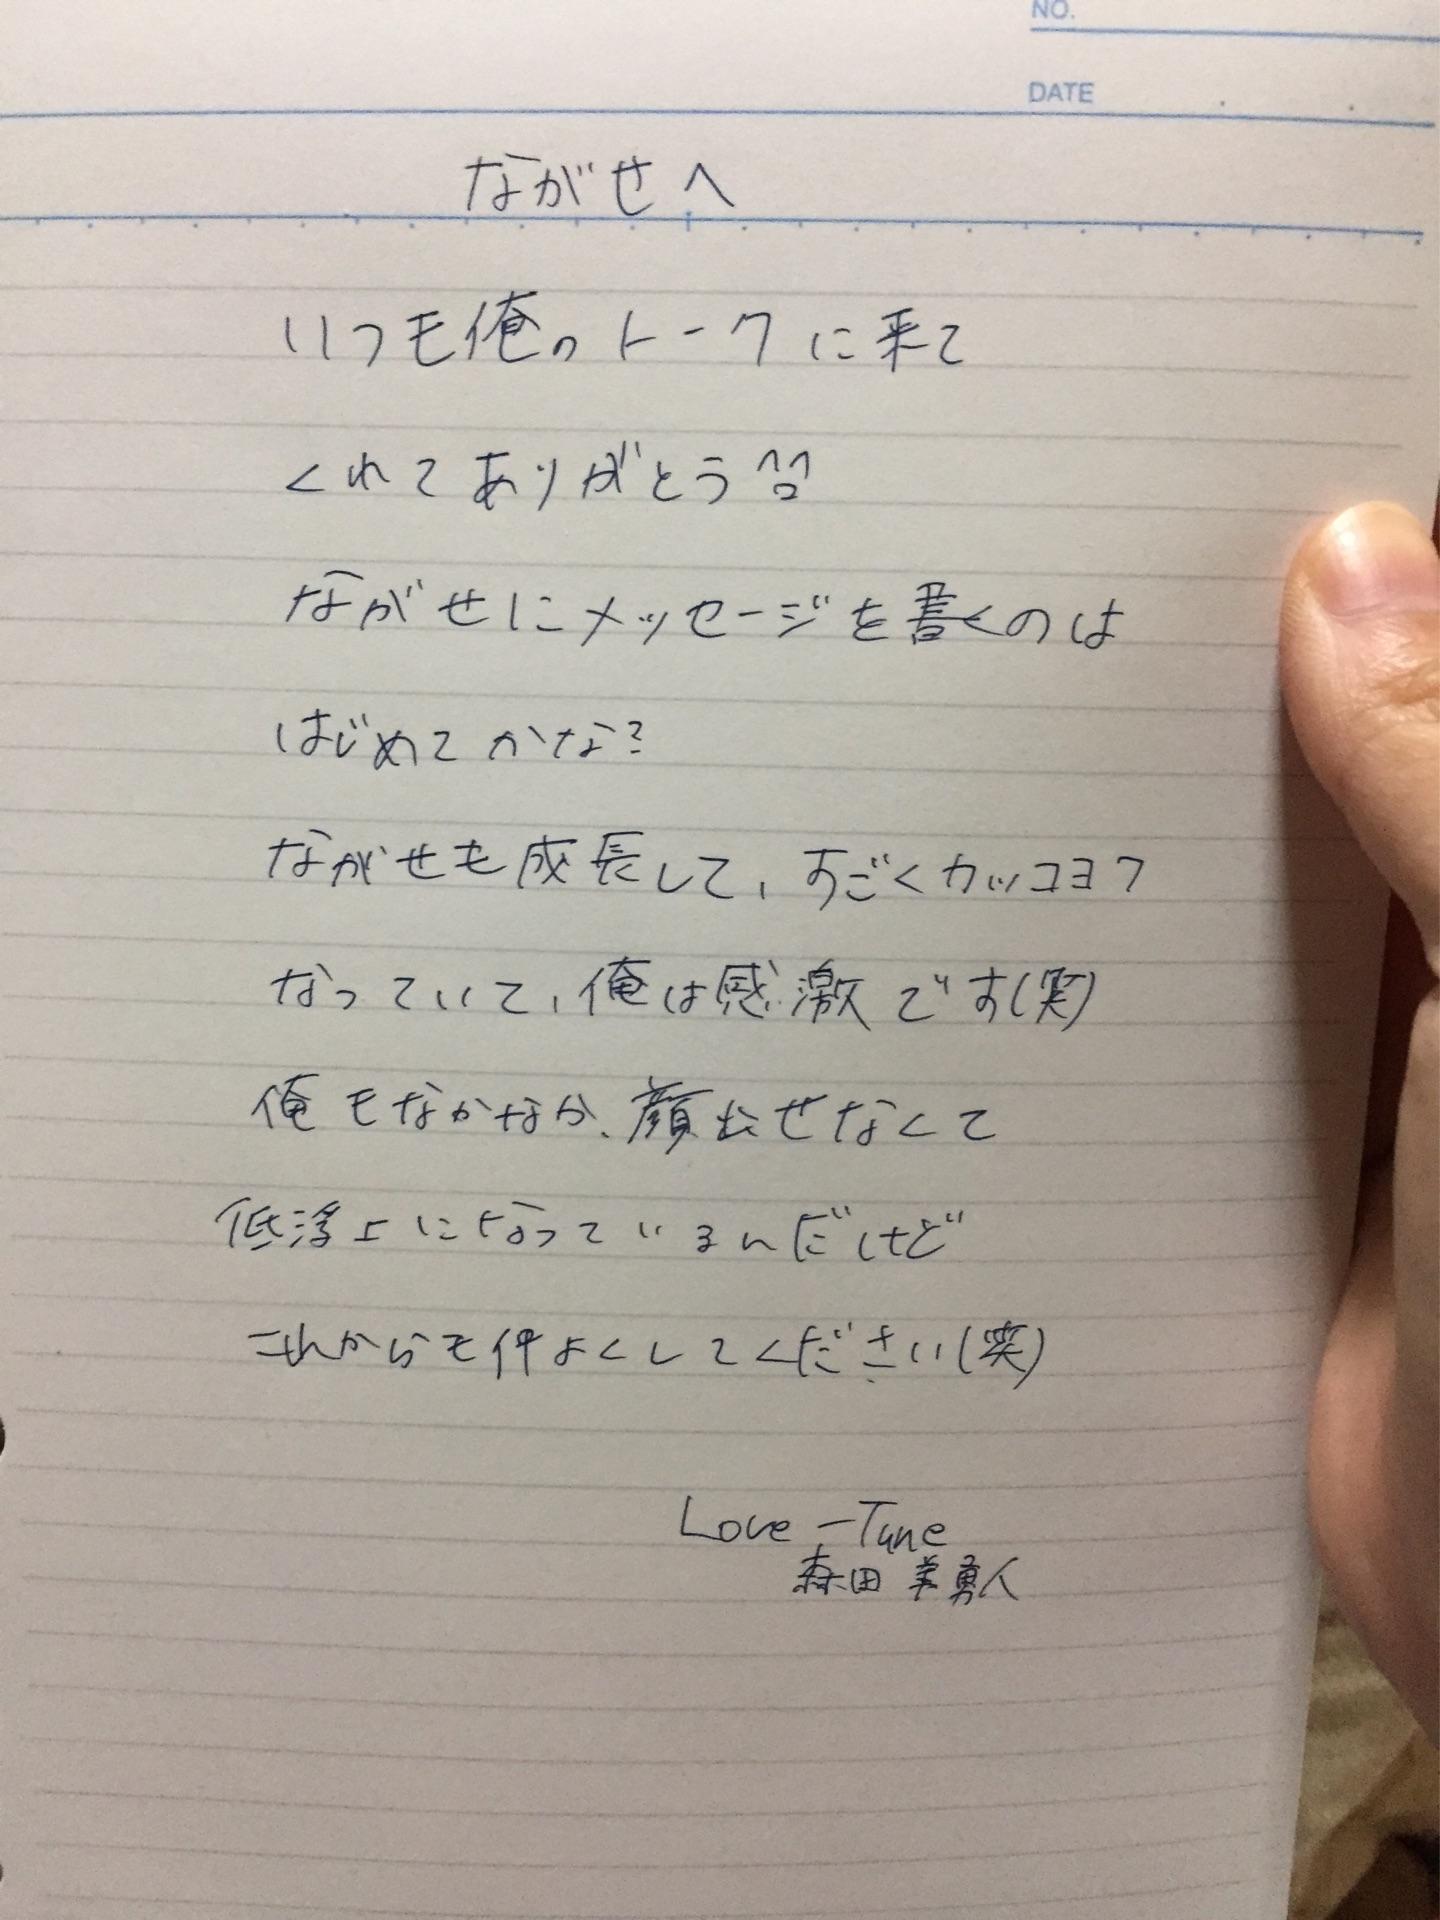 NO.
DATE
ながせへ
いつも俺のトークに来て
くれてありがとう^_^
ながせにメッセージを書くのは
はじめてかな?
ながせも成長して、すごくカッコヨク
なっていて、俺は感激です(笑)
俺もなかなか、顔出せなくて
低浮上になっているんだけど
これからも仲よくしてください(笑)
Love-Tune
森田美勇人